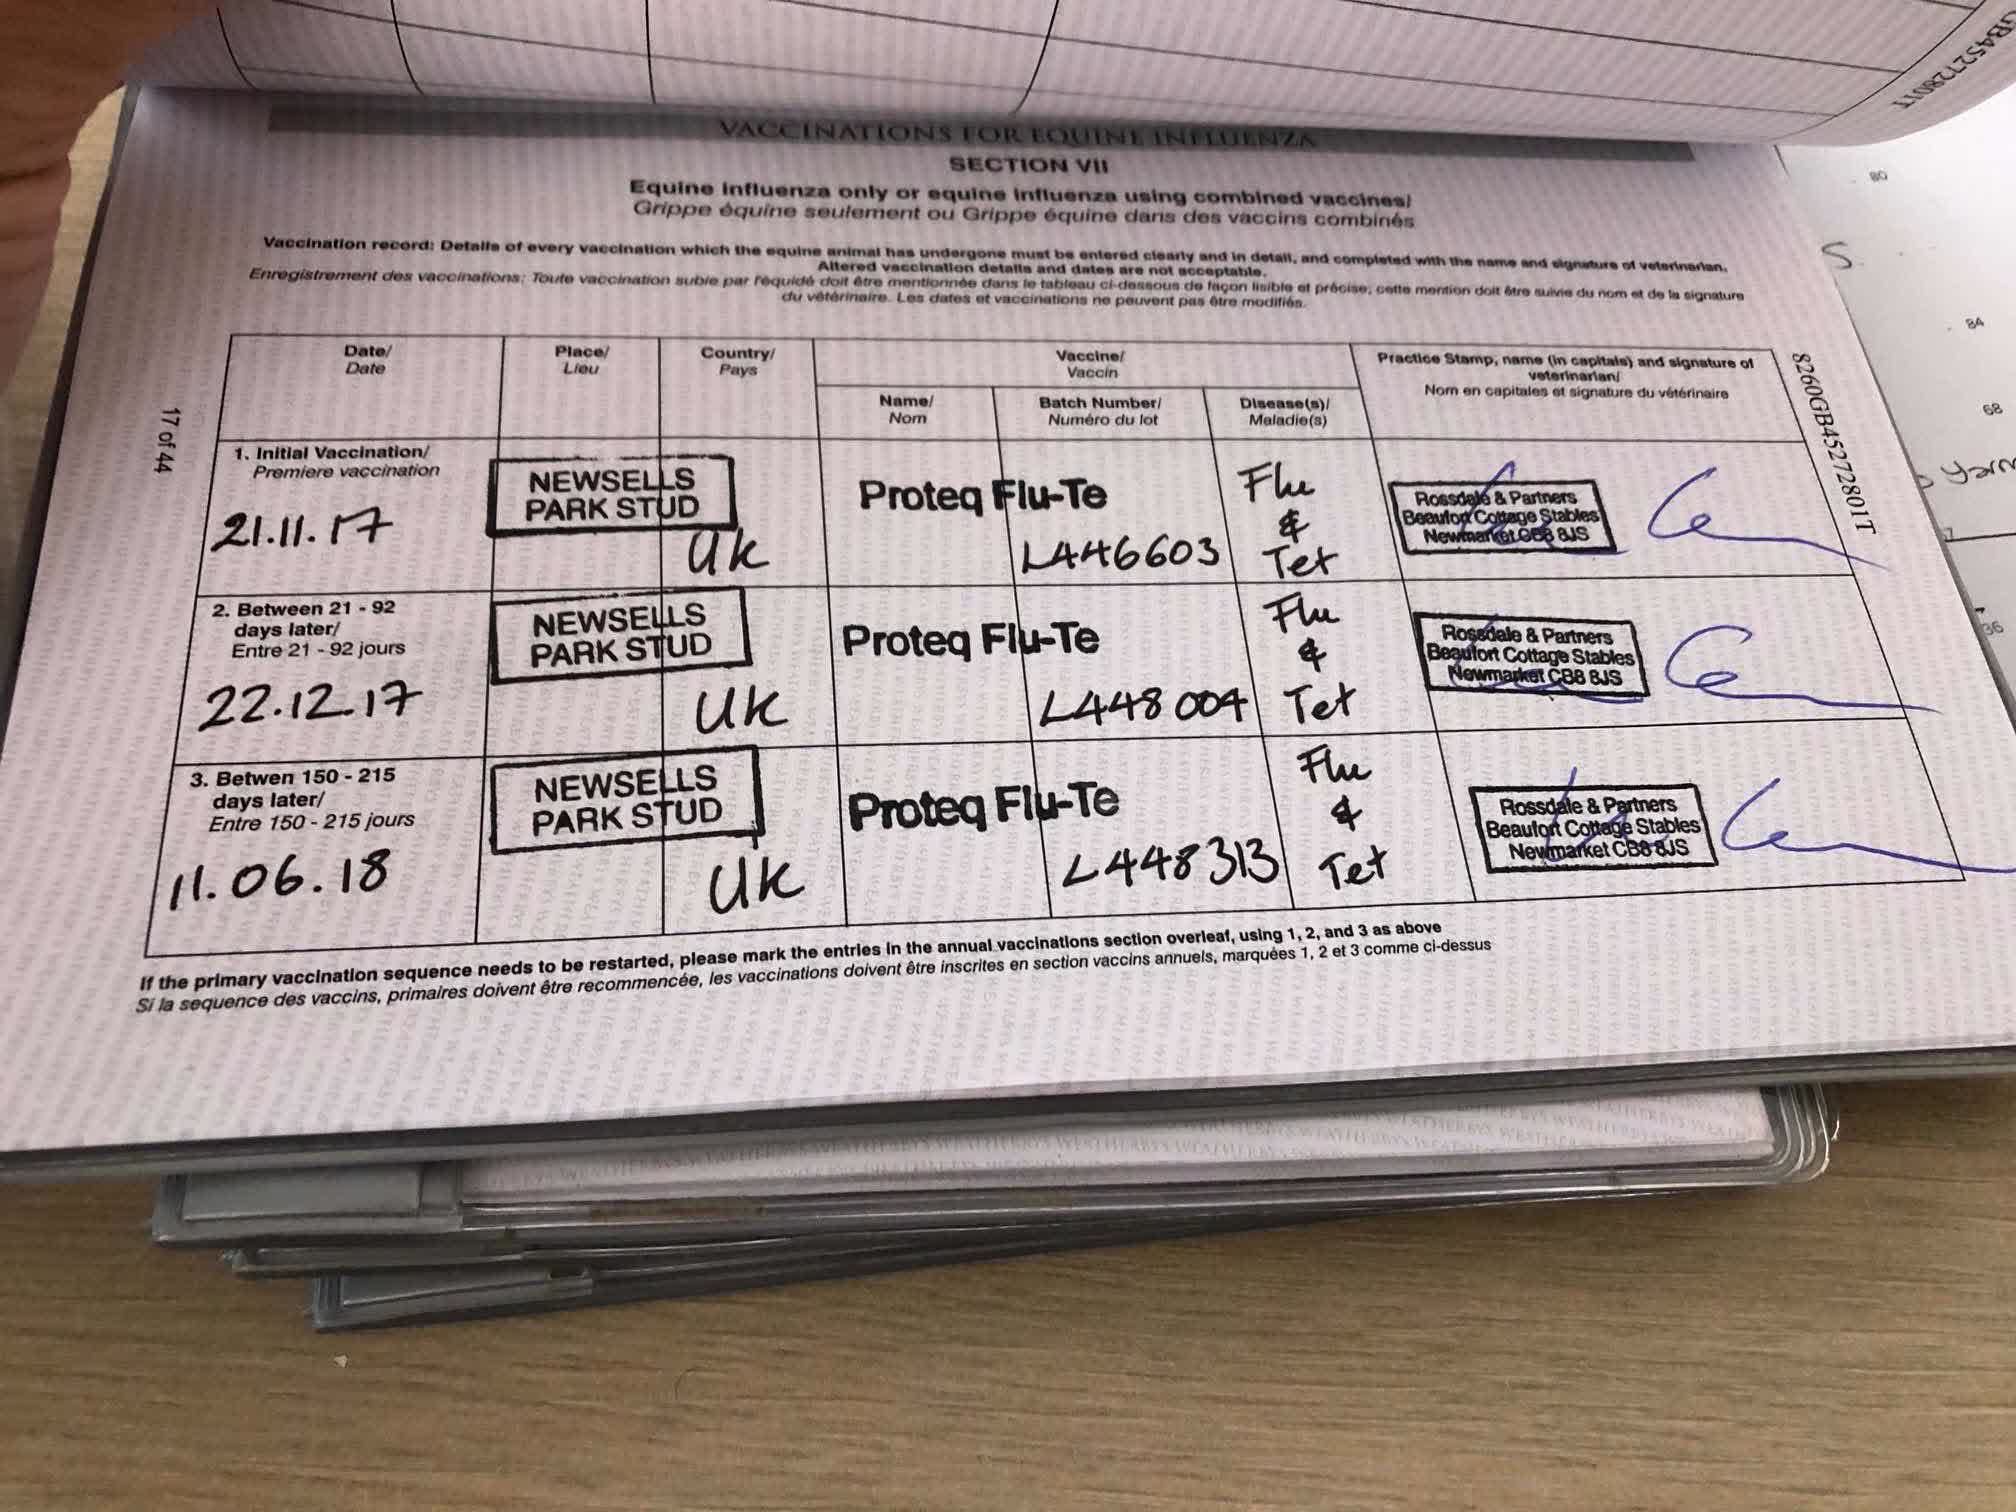 GB45272801T
VACCINATIONS FOR EQUINE INFLUENZA
SECTION VII
Equine influenza only or equine influenza using combined vaccines/
Grippe équine seulement ou Grippe équine dans des vaccins combinés
Vaccination record: Details of every vaccination which the equine animal has undergone must be entered clearly and in detail, and completed with the name and signature of veterinarian.
Altered vaccination details and dates are not acceptable.
Enregistrement des vaccinations: Toute vaccination subie par l'équidé doit être mentionnée dans le tableau ci-dessous de façon lisible et précise; cette mention doit être suivie du nom et de la signature
du vétérinaire. Les dates et vaccinations ne peuvent pas être modifiés.
Date/
Date
Place/
Lieu
Country/
Pays
Vaccine/
Vaccin
Name/
Nom
Batch Number/
Numéro du lot
Disease(s)/
Maladie(s)
Practice Stamp, name (in capitals) and signature of
veterinarian/
Nom en capitales et signature du vétérinaire
1. Initial Vaccination/
Premiere vaccination
21.11.17
NEWSELLS
PARK STUD
UK
Proteq Flu-Te
L446603
Flu
&
Tet
Rossdale & Partners
Beaufort Cottage Stables
Newmarket CB8 8JS
2. Between 21 - 92
days later/
Entre 21 - 92 jours
22.12.17
NEWSELLS
PARK STUD
UK
Proteq Flu-Te
L448004
Flu
&
Tet
Rossdale & Partners
Beaufort Cottage Stables
Newmarket CB8 8JS
3. Betwen 150 - 215
days later/
Entre 150 - 215 jours
11.06.18
NEWSELLS
PARK STUD
UK
Proteq Flu-Te
L448313
Flu
&
Tet
Rossdale & Partners
Beaufort Cottage Stables
Newmarket CB8 8JS
If the primary vaccination sequence needs to be restarted, please mark the entries in the annual vaccinations section overleaf, using 1, 2, and 3 as above
Si la sequence des vaccins, primaires doivent être recommencée, les vaccinations doivent être inscrites en section vaccins annuels, marquées 1, 2 et 3 comme ci-dessus
17 of 44
8260GB45272801T
80
84
68
36